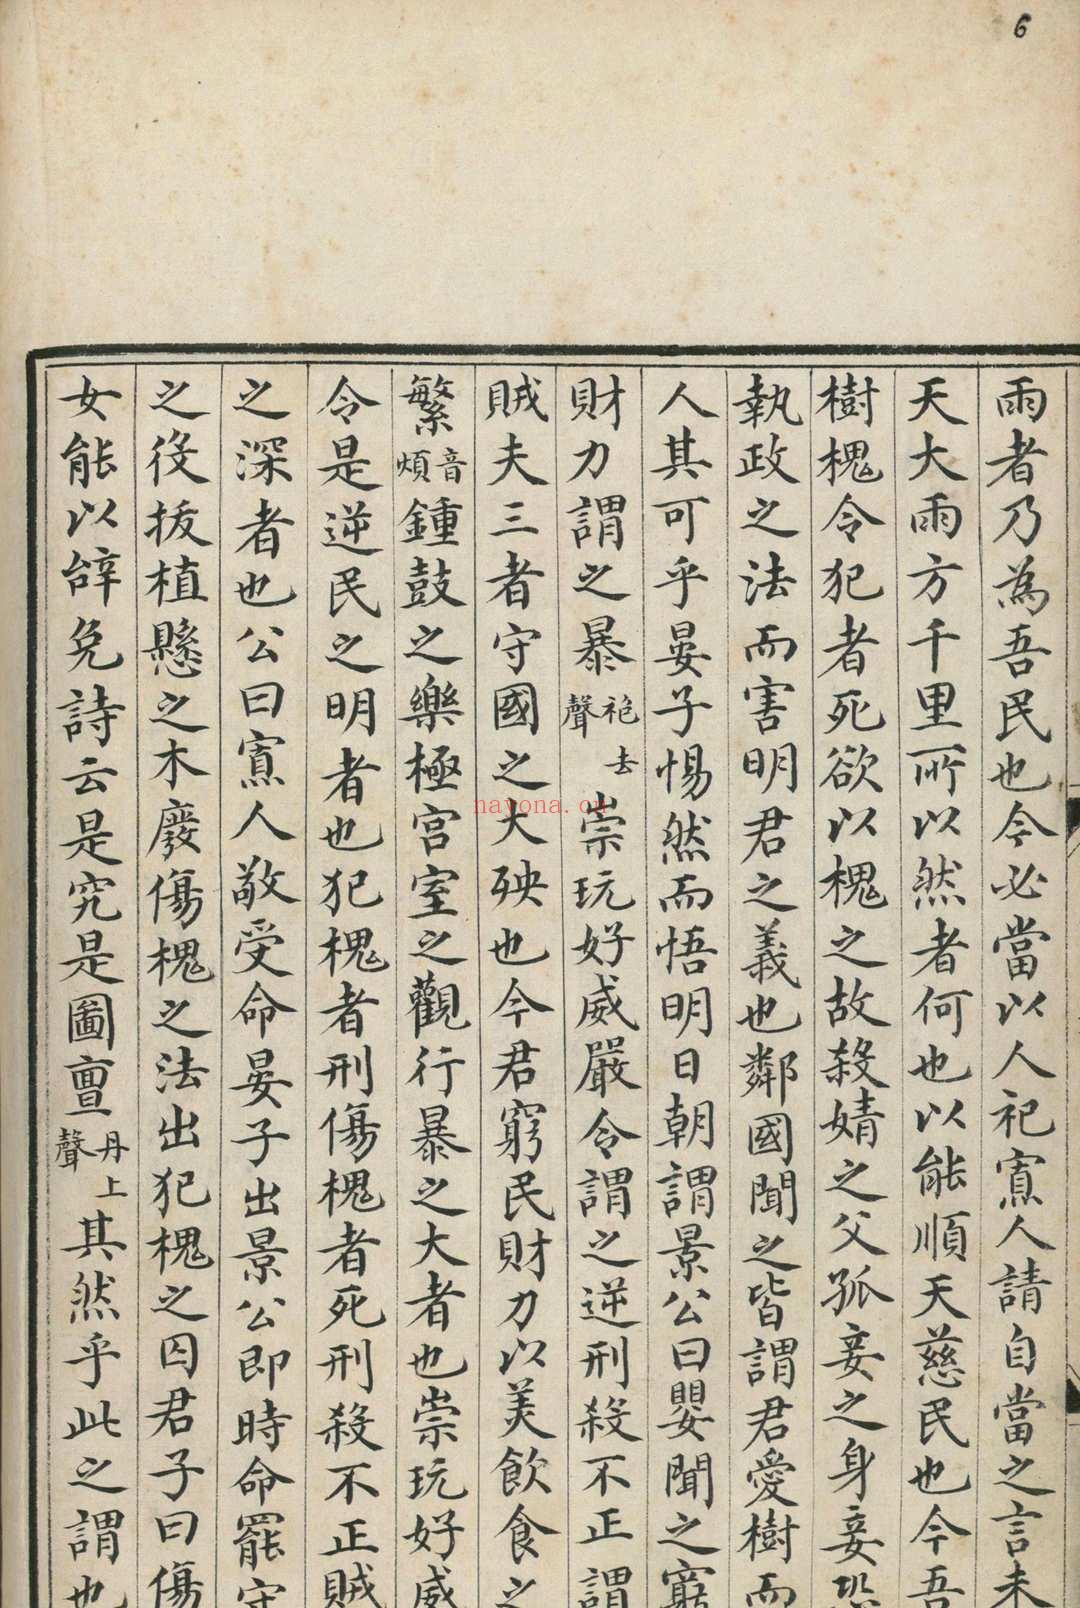 6
雨者乃為吾民也今必當以人祀寡人請自當之言未
天大雨方千里所以然者何也以能順天慈民也今吾
樹槐令犯者死欲以槐之故殺婧之父孤妾之身妾恐
執政之法而害明君之義也鄰國聞之皆謂君愛樹而
人其可乎晏子惕然而悟明日朝謂景公曰嬰聞之窮
財力謂之暴袍去聲崇玩好威嚴令謂之逆刑殺不正謂
賊夫三者守國之大殃也今君窮民財力以美飲食之
繁音煩鍾鼓之樂極宮室之觀行暴之大者也崇玩好威
令是逆民之明者也犯槐者刑傷槐者死刑殺不正賊
之深者也公曰寡人敬受命晏子出景公即時命罷守
之役拔植懸之木廢傷槐之法出犯槐之囚君子曰傷
女能以辭免詩云是究是圖亶丹上聲其然乎此之謂也
nayona.cn